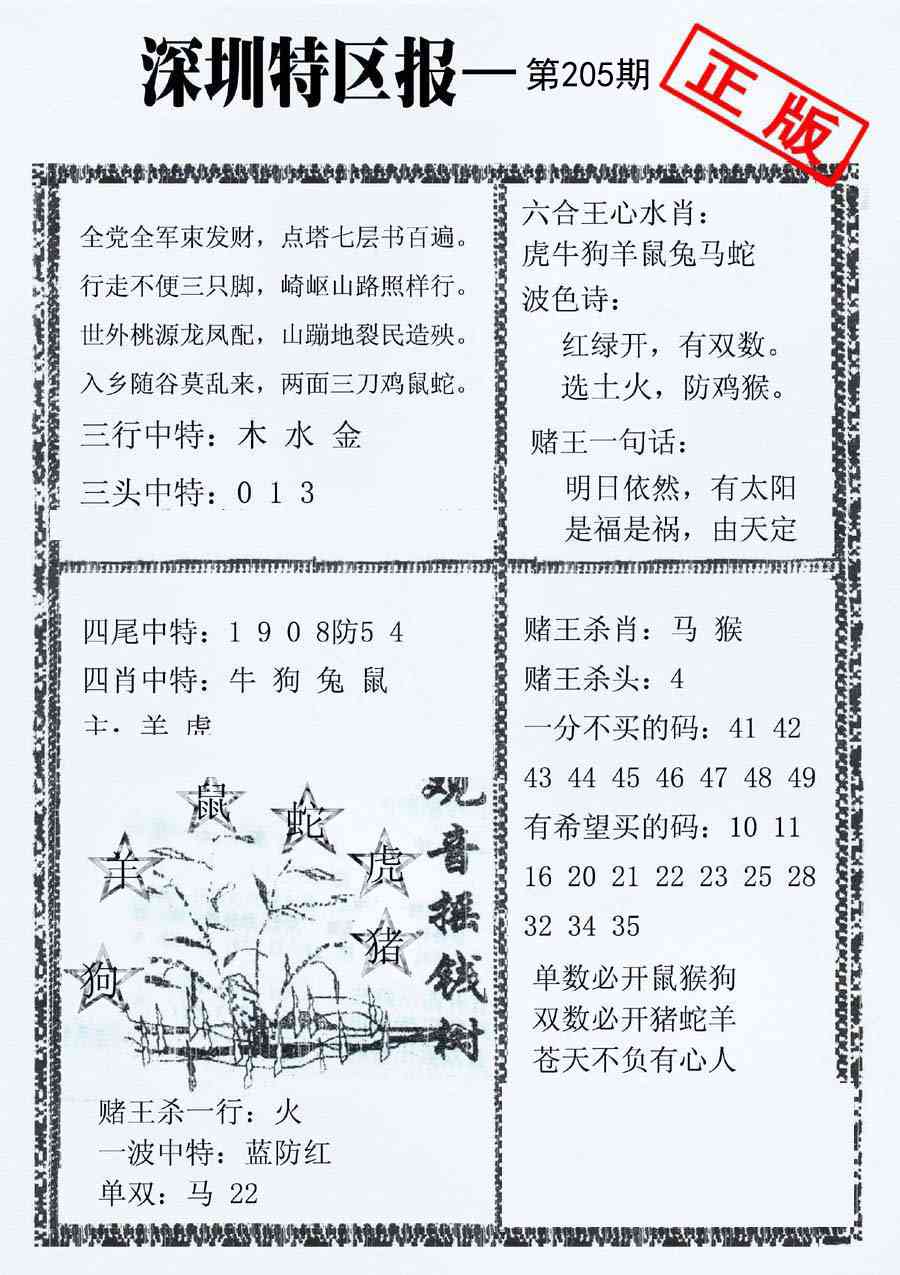 深圳特区报—第205期
正版
全党全军束发财，点塔七层书百遍。
行走不便三只脚，崎岖山路照样行。
世外桃源龙凤配，山蹦地裂民造殃。
入乡随谷莫乱来，两面三刀鸡鼠蛇。
三行中特：木 水 金
三头中特：0 1 3
六合王心水肖：
虎牛狗羊鼠兔马蛇
波色诗：
红绿开，有双数。
选土火，防鸡猴。
赌王一句话：
明日依然，有太阳
是福是祸，由天定
四尾中特：1 9 0 8防5 4
四肖中特：牛 狗 兔 鼠
主：羊 虎
鼠
蛇
羊
虎
猪
狗
观音摇钱树
赌王杀一行：火
一波中特：蓝防红
单双：马 22
赌王杀肖：马 猴
赌王杀头：4
一分不买的码：41 42
43 44 45 46 47 48 49
有希望买的码：10 11
16 20 21 22 23 25 28
32 34 35
单数必开鼠猴狗
双数必开猪蛇羊
苍天不负有心人